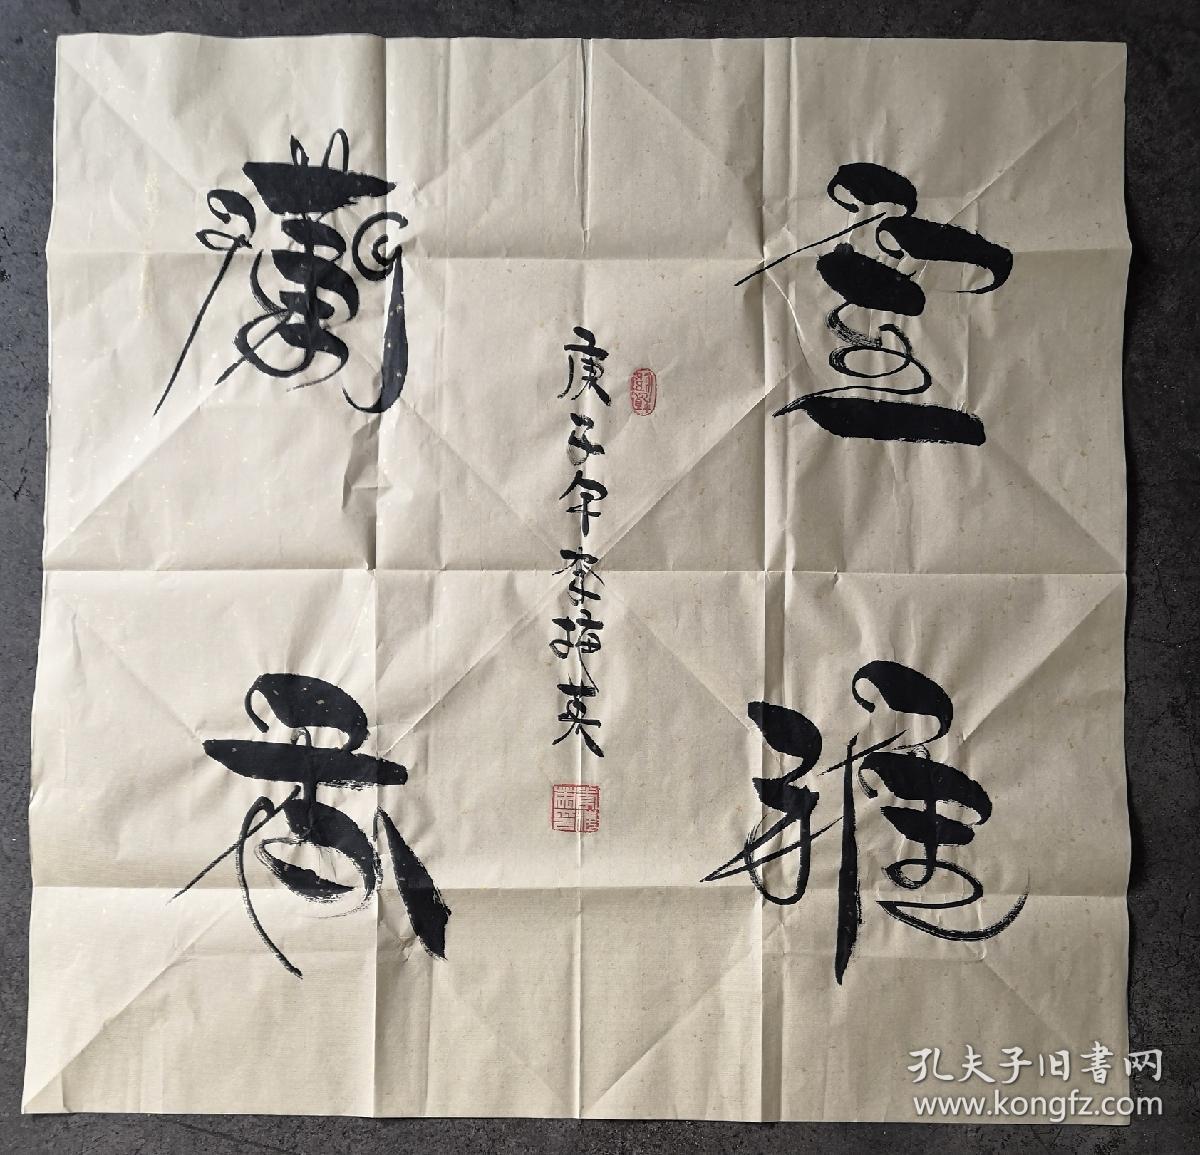 室雅
兰香
庚子年李梅英
孔夫子旧书网
www.kongfz.com